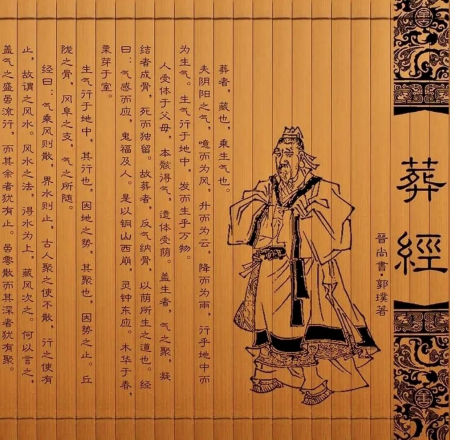 葬經
晉尚書·郭璞著
葬者，藏也，乘生气也。
夫阴阳之气，噫而为风，升而为云，降而为雨，行乎地中而
为生气。生气行乎地中，发而生乎万物。
人受体于父母，本骸得气，遗体受荫。盖生者，气之聚，凝
结者成骨，死而独留。故葬者，反气纳骨，以荫所生之道也。经
曰：气感而应，鬼福及人。是以铜山西崩，灵钟东应。木华于春，
栗芽于室。
生气行乎地中，其行也，因地之势，其聚也，因势之止。丘
陇之骨，冈阜之支，气之所随。
经曰：气乘风则散，界水则止，古人聚之使不散，行之使有
止，故谓之风水。风水之法，得水为上，藏风次之。何以言之，
盖气之盛虽流行，而其余者犹有止。虽零散而其深者犹有聚。